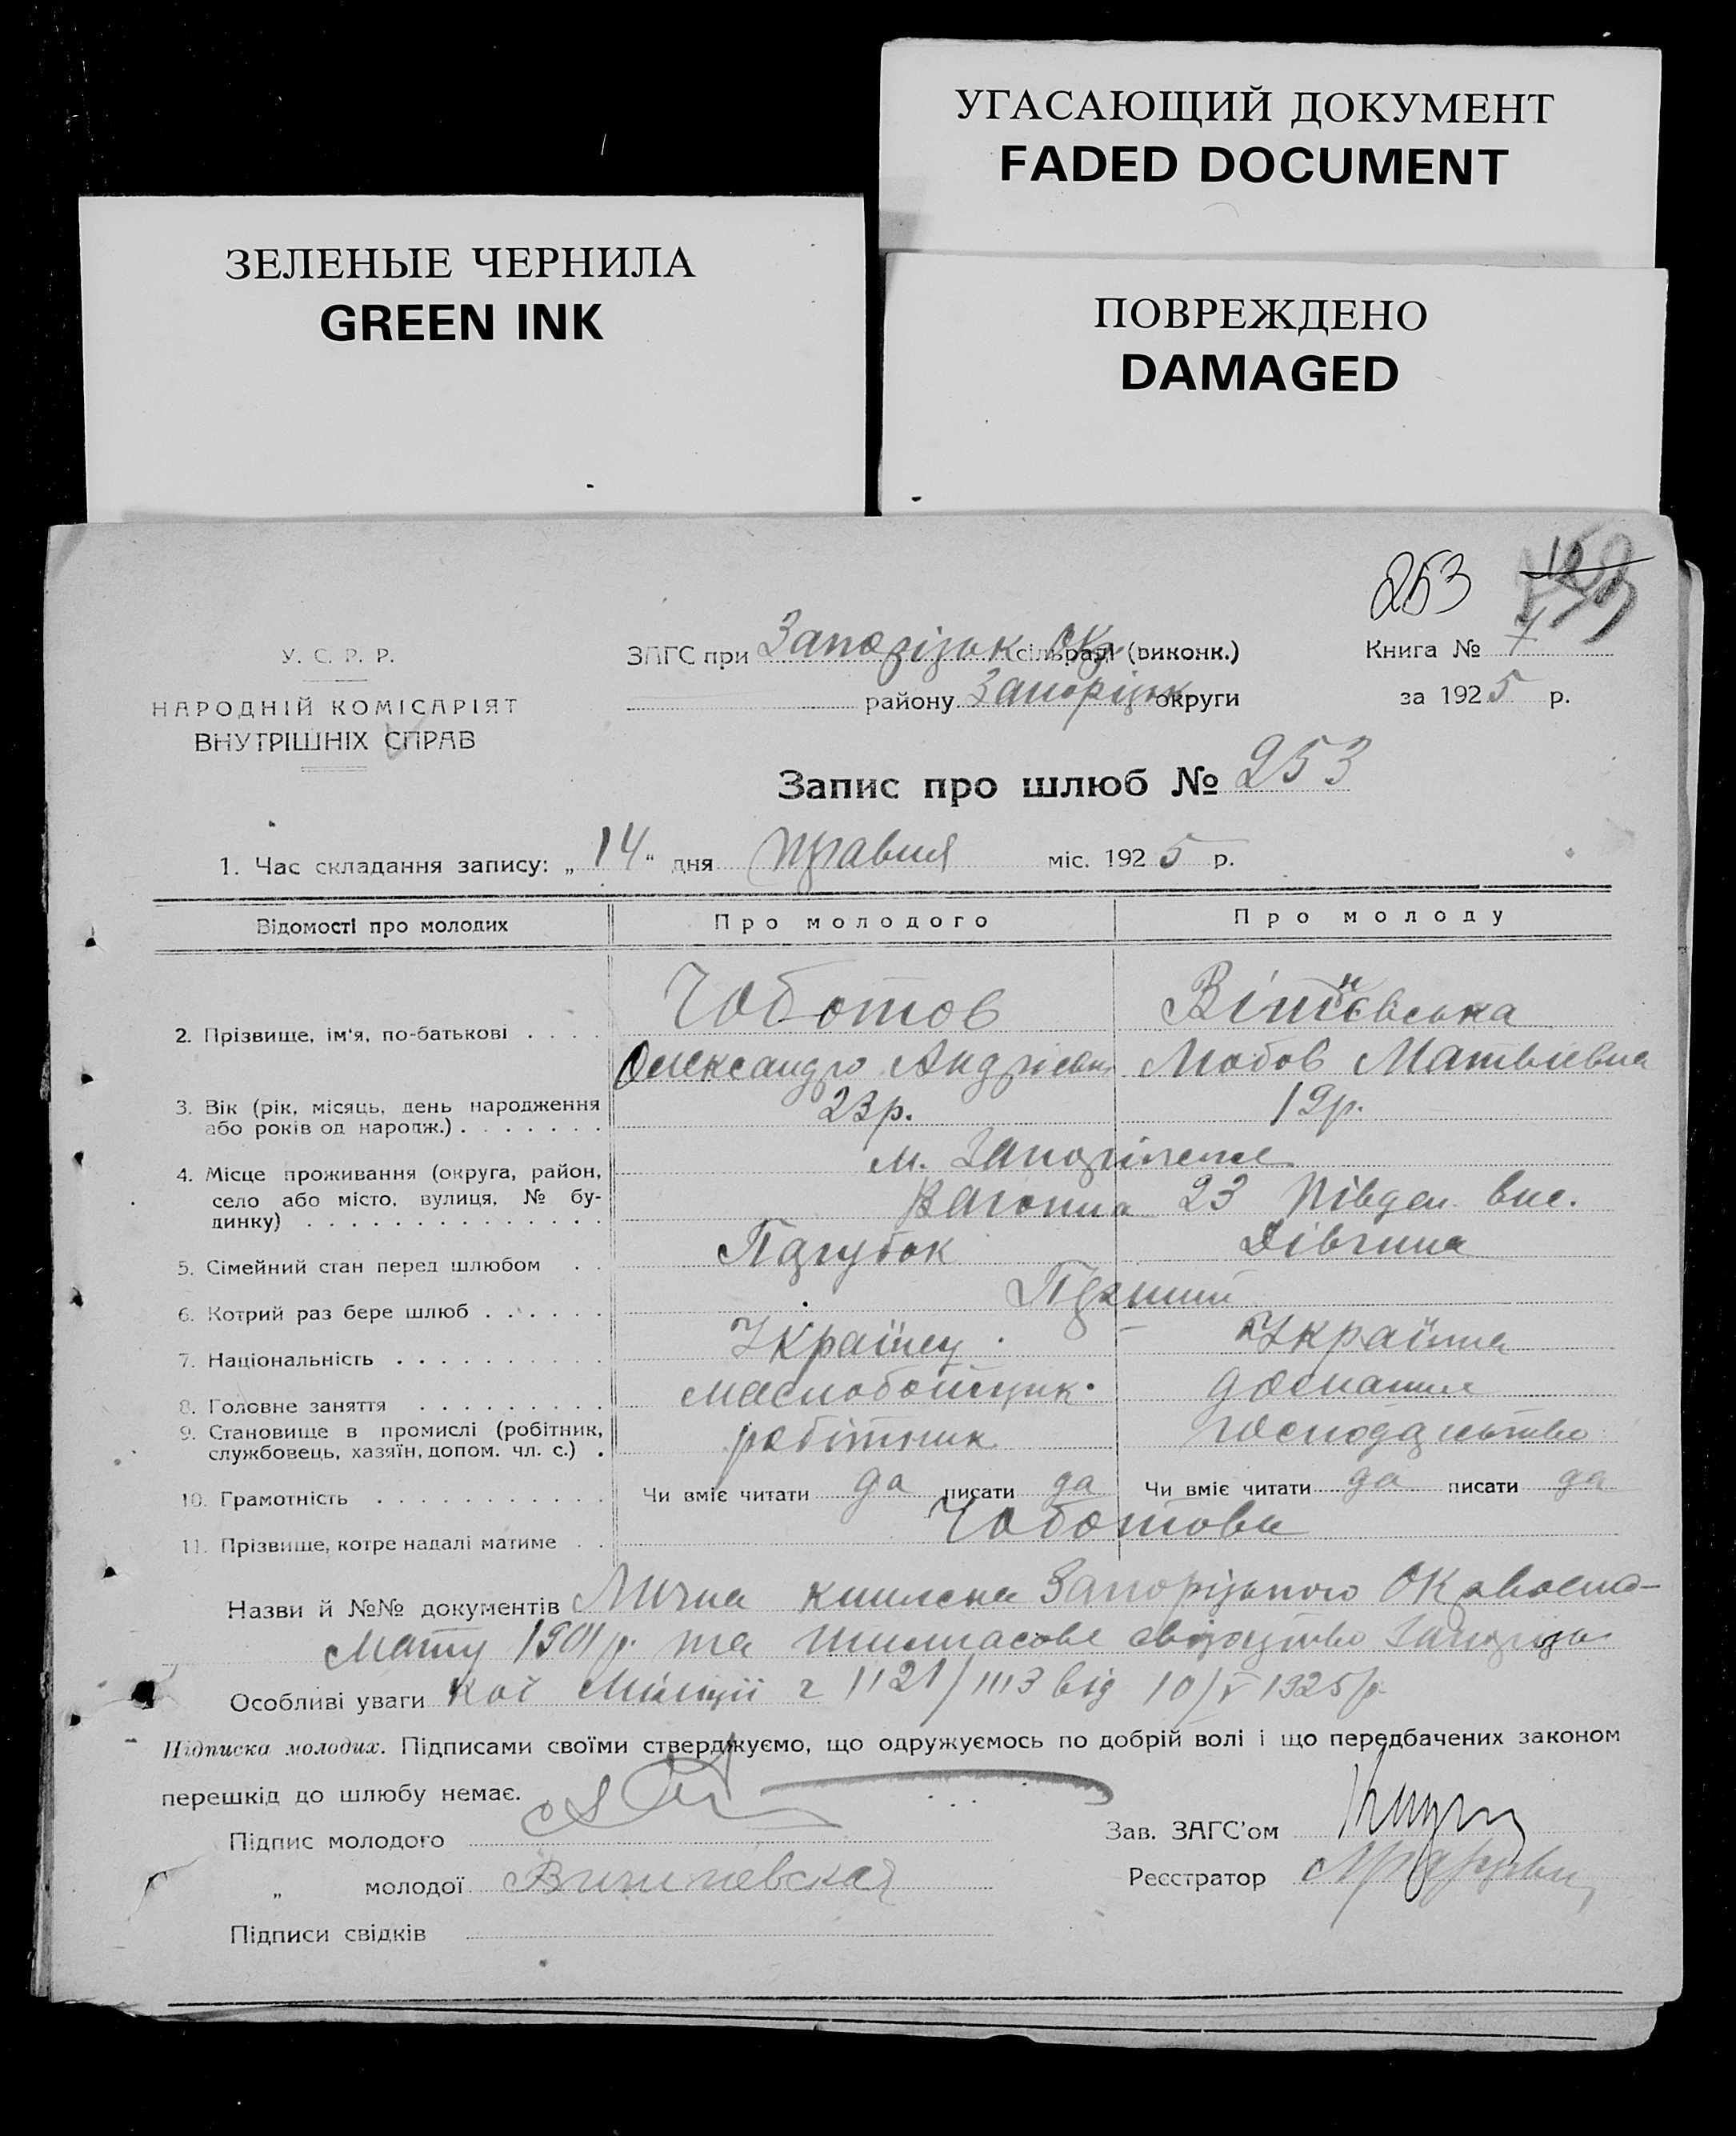 УГАСАЮЩИЙ ДОКУМЕНТ
FADED DOCUMENT
ЗЕЛЕНЫЕ ЧЕРНИЛА
GREEN INK
ПОВРЕЖДЕНО
DAMAGED
253
У. С. Р. Р.
НАРОДНІЙ КОМІСАРІЯТ
ВНУТРІШНІХ СПРАВ
ЗАГС при Запорізьк сільраді (виконк.)
району Запорізьк округи
Книга № 7
за 1925 р.
Запис про шлюб № 253
1. Час складання запису: „14" дня травня міс. 1925 р.
Відомості про молодих Про молодого Про молоду
2. Прізвище, ім'я, по-батькові . . . . Чоботов
Олександр Андрієвич Любов Матвіевна
3. Вік (рік, місяць, день народження або років од народж.) . . . . . . . 23р. 19р.
4. Місце проживання (округа, район, село або місто, вулиця, № будинку) . . . . . . . . . . . . . . м. Запоріжже
23 Півден. вис.
5. Сімейний стан перед шлюбом . . Парубок Дівчина
6. Котрий раз бере шлюб . . . . . . Перший
7. Національність . . . . . . . . . . Українец Українка
8. Головне заняття . . . . . . . . . маслобойщик домашне
9. Становище в промислі (робітник, службовець, хазяїн, допом. чл. с.) . робітник господарство
10. Грамотність . . . . . . . . . . . Чи вміє читати да писати да Чи вміє читати да писати да
11. Прізвище, котре надалі матиме . . Чоботови
Назви й №№ документів Лична книжка Запорізького
1901 р. та тимчасове
Особливі уваги кої Міліції 1121/1113 від 10/V 1925 р.
Підписка молодих. Підписами своїми стверджуємо, що одружуємось по добрій волі і що передбачених законом
перешкід до шлюбу немає.
Підпис молодого
Зав. ЗАГС'ом
„ молодої Вишневская
Реєстратор
Підписи свідків